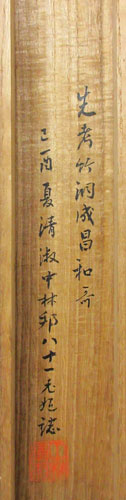 先考竹洞成昌和哥
己酉夏清淑中林八十一老誌